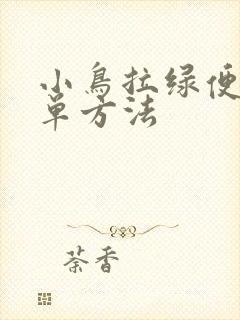 小鳥拉绿便
单方法
荼香